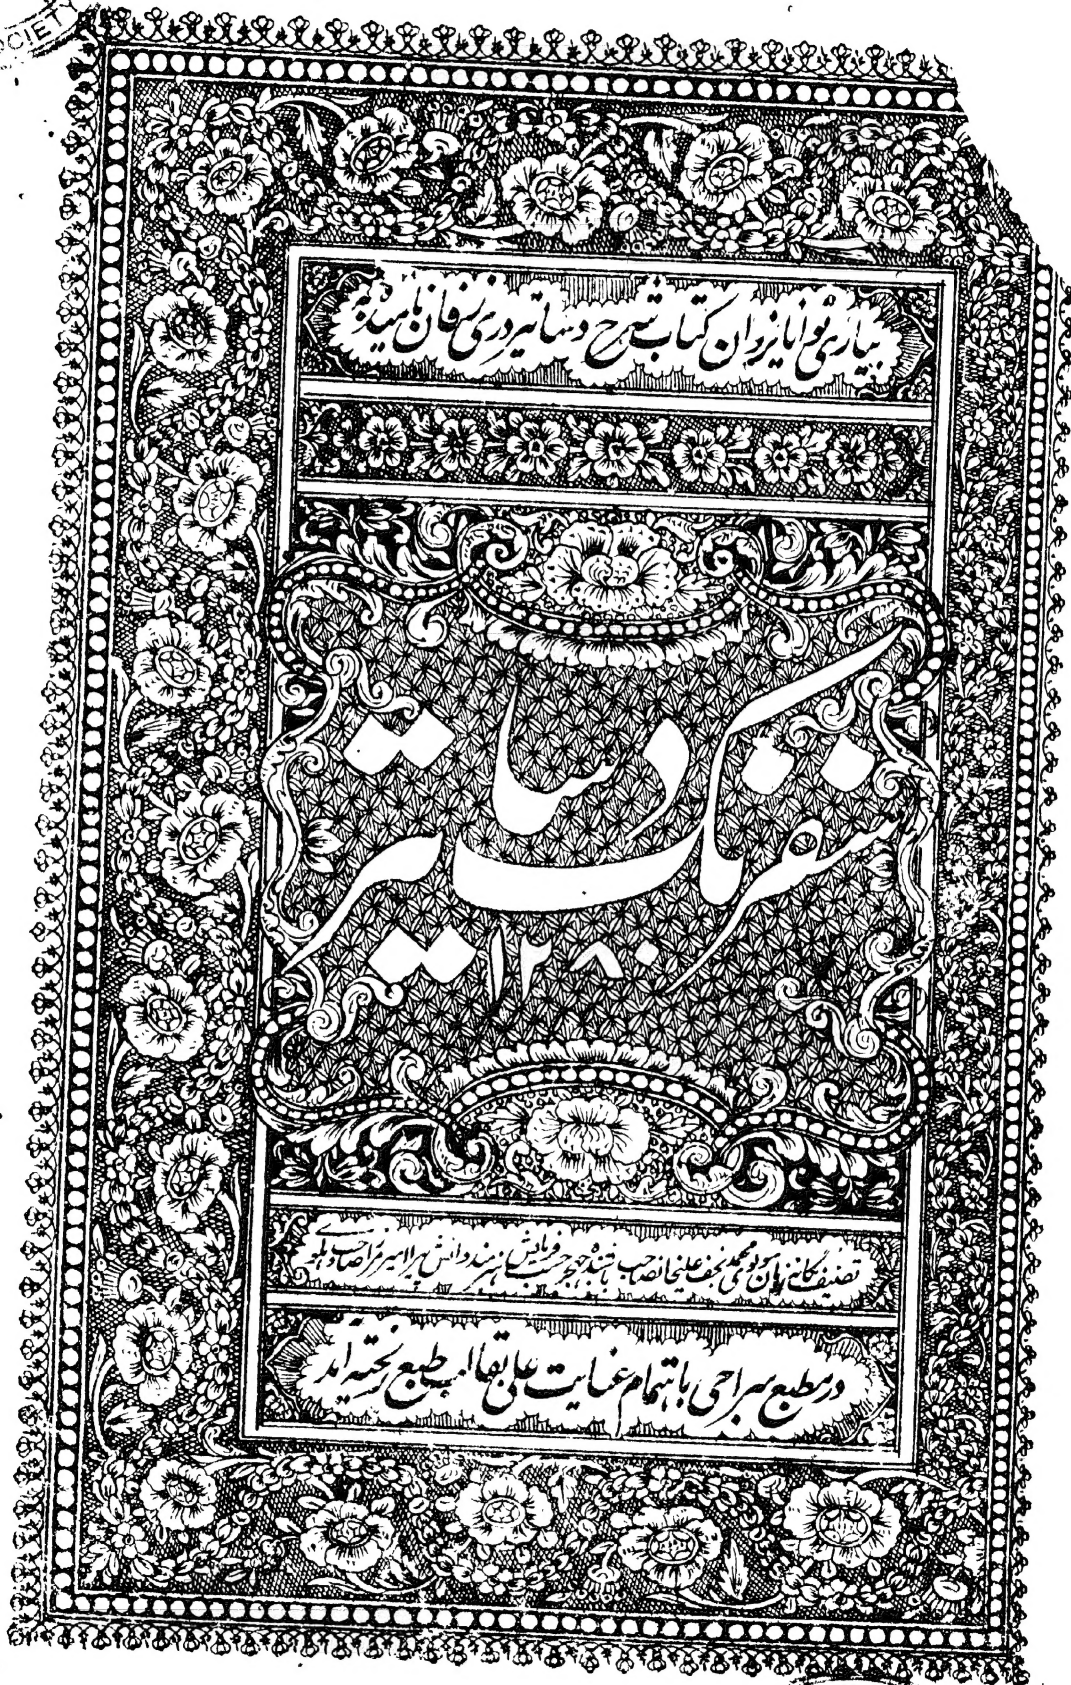 OCIETY
بیاری توانا یزدان کتاب شرح دساتیر دری زفان نامیده به
سفرنگ دساتیر
۱۲۸۰
تصنیف یگانه زمان مولوی محمد نجف علیخانصاحب باشنده جهجر حسب فرمایش هنرمند دانش پیرا میرزا صاحب دهلوی
در مطبع سراجی باهتمام عنایت علی بقالب طبع ریخته آمد